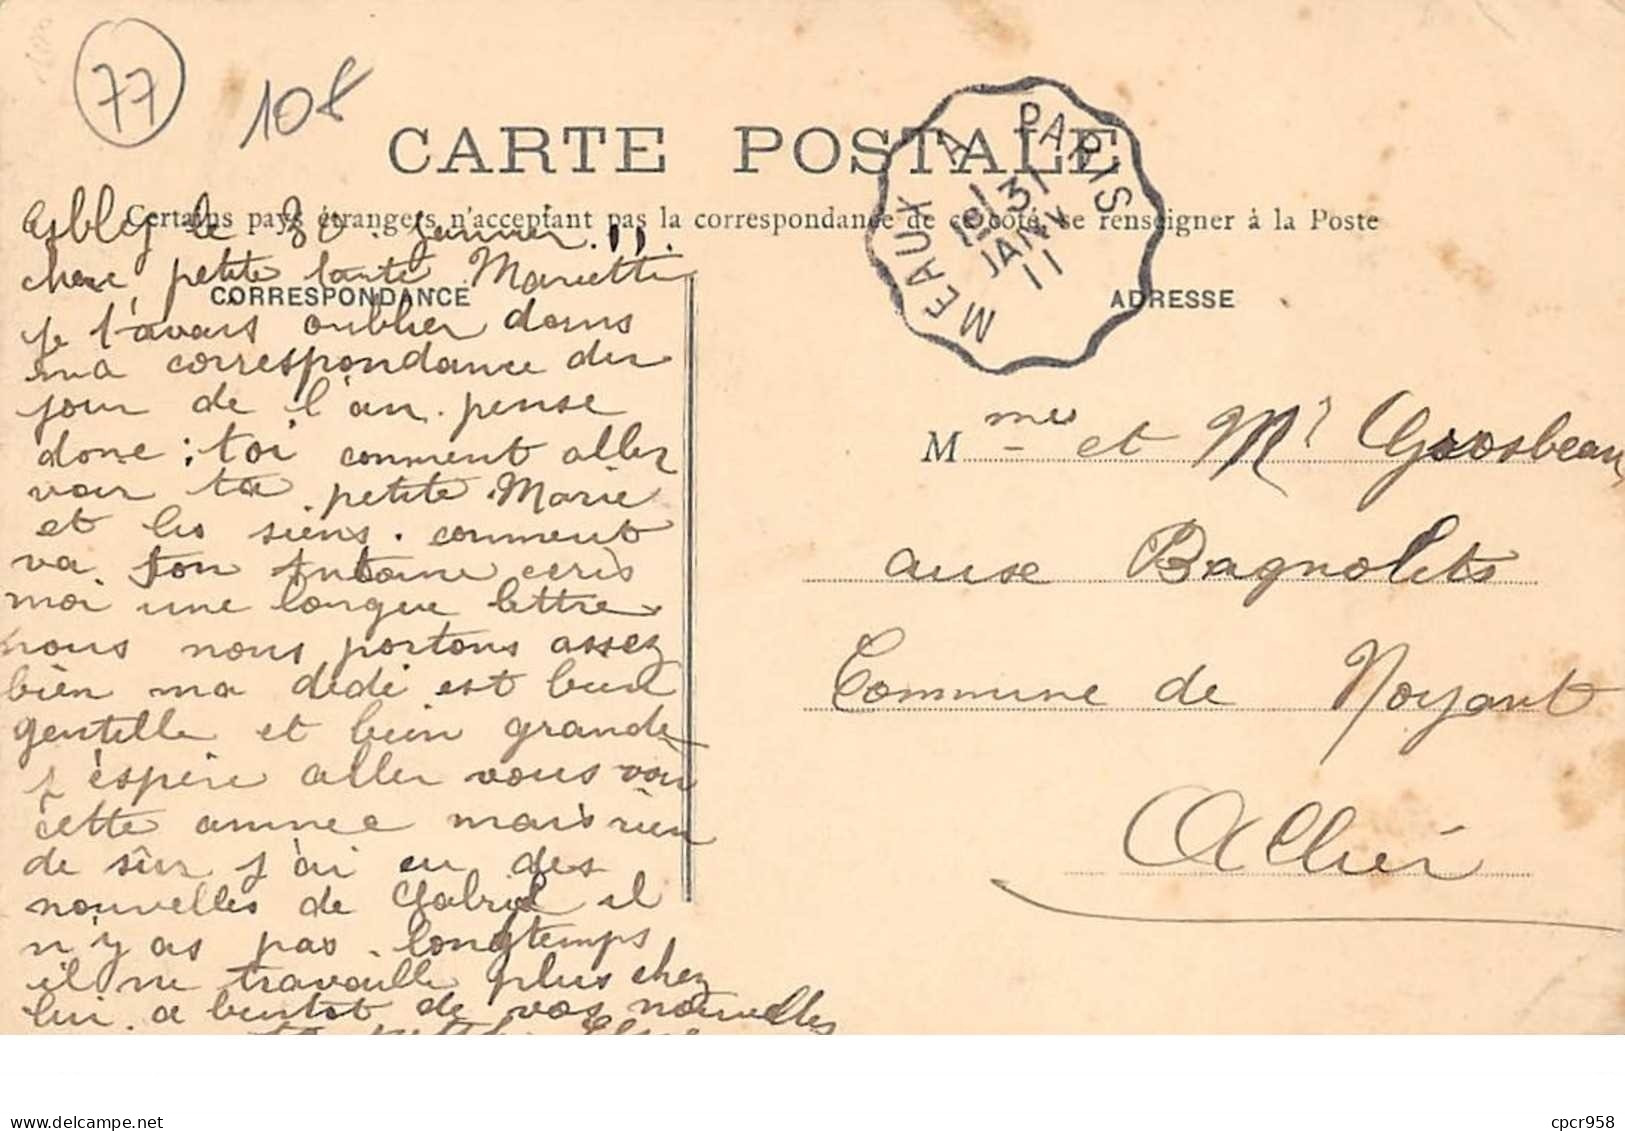 77
CARTE POSTALE
Certains pays étrangers n'acceptant pas la correspondance de ce côté, se renseigner à la Poste
MEAUX A PARIS
31
JANV
11
CORRESPONDANCE
ADRESSE
le 30 janvier 11.
chere petite tante Marietti
je t'avais oublier dans
ma correspondance du
jour de l'an. pense
donc ; toi comment aller
voir ta petite Marie
et les siens. comment
va ton Antoine ecris
moi une longue lettre
nous nous portons assez
bien ma dedé est bien
gentille et bien grande
j'éspère aller vous voir
cette annnee mais rien
de sûr j'ai eu des
nouvelles de Gabriel il
n'y as pas longtemps
il ne travaille plus chez
lui. a bientot de vos nouvelles
ta petite
Mmes et Mr Grosbeau
aux Bagnolets
Commune de Noyant
Allier
delcampe.net
cpcr958